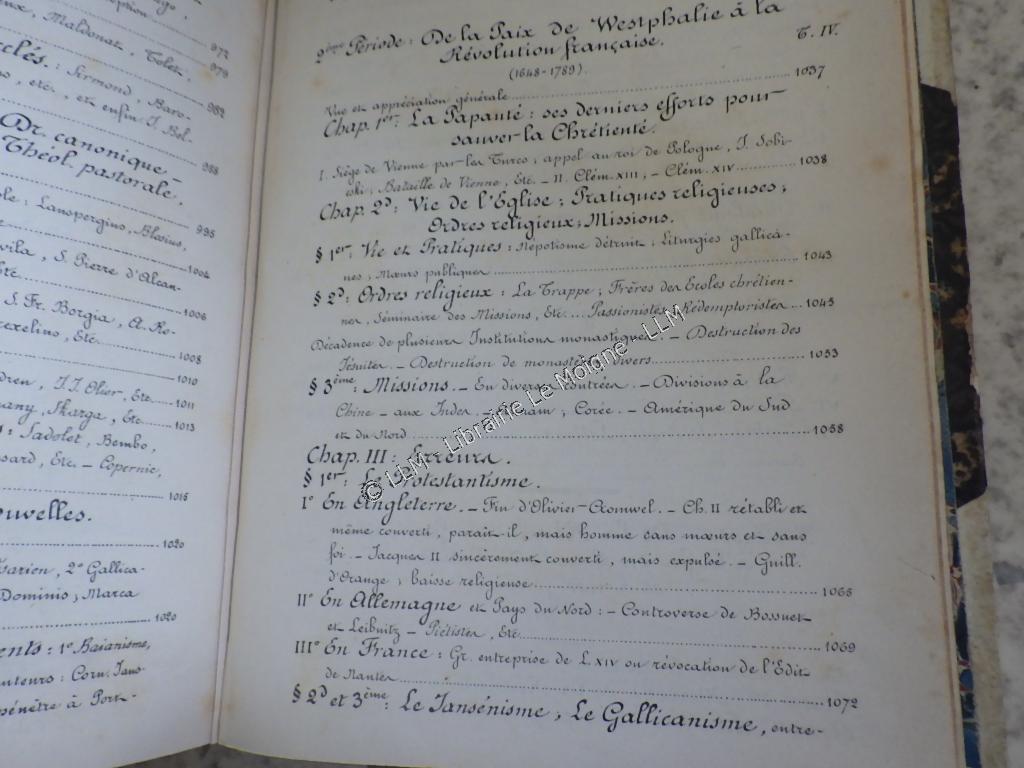 , Maldonat, Tolet,
972
979
clés. : Sirmond, Baro-
982
, etc., et enfin J. Bel.
988
Dr. canonique –
Théol. pastorale.
: Lanspergius, Blosius,
995
vila, S. Pierre d'Alcan-
1004
1006
S. Fr. Borgia, A. Ro-
, Etc.
1008
1010
, J.J. Olier, Etc. 1011
, Skarga, Etc. 1013
: Sadolet, Bembo,
, Etc. – Copernic,
1016
ouvelles.
1020
, 2° Gallica-
Dominis ; Marca
1020
ents : 1° Baianisme,
: Corn. Jans
pénètre à Port-
2ème Période : De la Paix de Westphalie à la
Révolution française. T. IV.
(1648-1789).
Vue et appréciation générale 1037
Chap. 1er : La Papauté : ses derniers efforts pour
sauver la Chrétienté.
I. Siège de Vienne par les Turcs ; appel au roi de Pologne, J. Sobi-
eski ; Bataille de Vienne, Etc. – II. Clém. XIII ; – Clém. XIV 1038
Chap. 2d : Vie de l'Église ; Pratiques religieuses ;
Ordres religieux ; Missions.
§ 1er : Vie et Pratiques : Népotisme détruit ; Liturgies gallica-
nes ; Mœurs publiques 1043
§ 2d : Ordres religieux : La Trappe ; Frères des Écoles chrétien-
nes, Séminaire des Missions, Etc... Passionistes, Rédemptoristes 1045
Décadence de plusieurs Institutions monastiques. – Destruction des
Jésuites. – Destruction de monastères divers 1053
§ 3ème : Missions. – En diverses contrées. – Divisions à la
Chine – aux Indes. – Annam ; Corée. – Amérique du Sud
et du Nord 1058
Chap. III : Erreurs.
§ 1er : Le Protestantisme.
I° En Angleterre. – Fin d'Olivier-Cromwel. – Ch. II rétabli et
même converti, paraît-il, mais homme sans mœurs et sans
foi. – Jacques II sincèrement converti, mais expulsé. – Guill.
d'Orange ; baisse religieuse 1066
II° En Allemagne et Pays du Nord : – Controverse de Bossuet
et Leibnitz – Piétistes, Etc. 1069
III° En France : Gr. entreprise de L. XIV ou révocation de l'Édit
de Nantes 1072
§ 2d et 3ème : Le Jansénisme ; Le Gallicanisme, entre-
© LLM - Librairie Le Moigne - LLM